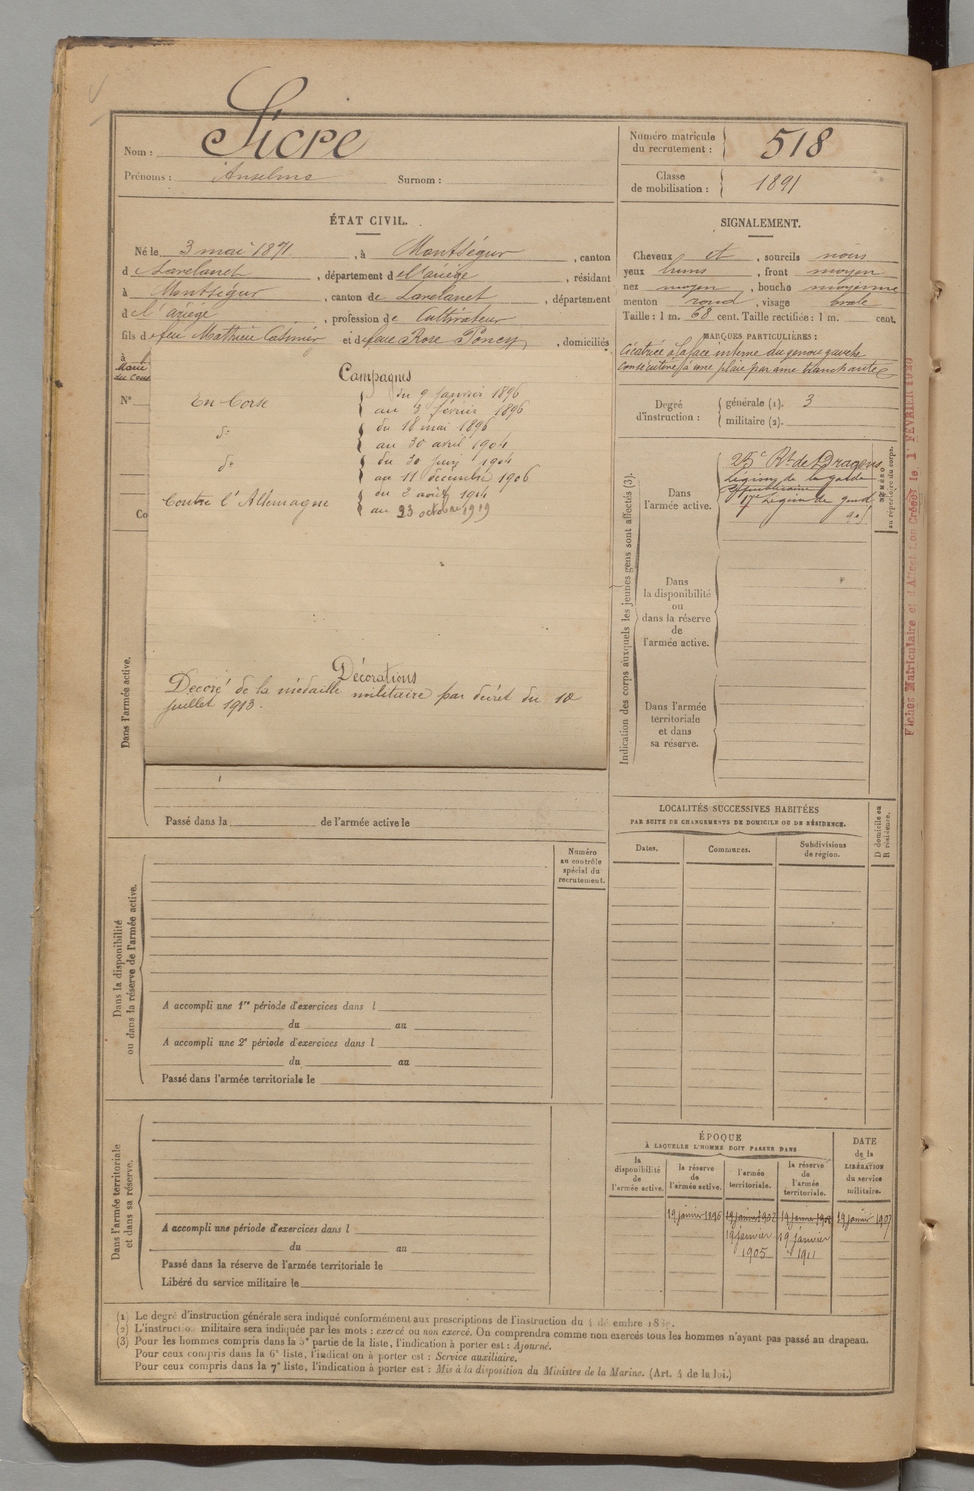 Sicre
Nom :
Prénoms : Anselme Surnom :
Numéro matricule
du recrutement : 518
Classe
de mobilisation : 1891
ÉTAT CIVIL.
Né le 3 mai 1871, à Montségur, canton
d Lavelanet, département de l'ariége, résidant
à Montségur, canton de Lavelanet, département
de l'ariége, profession de Cultivateur
fils de feu Mathieu Casimir et de feue Rose Poncy, domiciliés
à
Marié
N°
Co
SIGNALEMENT.
Cheveux et, sourcils noirs
yeux bruns, front moyen
nez moyen, bouche moyenne
menton rond, visage ovale
Taille : 1 m. 68 cent. Taille rectifiée : 1 m. cent.
MARQUES PARTICULIÈRES :
Cicatrice à la face interne du genou gauche
consécutive à une plaie par arme tranchante
Degré
d'instruction : générale (1). 3
militaire (2).
Campagnes
En Corse du 9 janvier 1896
au 3 février 1896
d° du 18 mai 1896
au 30 avril 1904
d° du 30 juin 1904
au 11 décembre 1906
Contre l'Allemagne du 2 août 1914
au 23 octobre 1919
Décorations
Décoré de la médaille militaire par décret du 10
juillet 1913.
Dans l'armée active.
Passé dans la de l'armée active le
Indication des corps auxquels les jeunes gens sont affectés (3).
Dans
l'armée active.
25e Rt de Dragons
Légion de la garde
républicaine
17e Légion de gend
NUMÉRO
au répertoire du corps.
Dans
la disponibilité
ou
dans la réserve
de
l'armée active.
Dans l'armée
territoriale
et dans
sa réserve.
Fiches Matriculaire et d'Affectation Créées le 1er FÉVRIER 1926
LOCALITÉS SUCCESSIVES HABITÉES
PAR SUITE DE CHANGEMENTS DE DOMICILE OU DE RÉSIDENCE.
Dates.
Communes.
Subdivisions
de région.
D domicile ou
R résidence.
Dans la disponibilité
ou dans la réserve de l'armée active.
Numéro
au contrôle
spécial du
recrutement.
A accompli une 1re période d'exercices dans l
du au
A accompli une 2e période d'exercices dans l
du au
Passé dans l'armée territoriale le
Dans l'armée territoriale
et dans sa réserve.
A accompli une période d'exercices dans l
du au
Passé dans la réserve de l'armée territoriale le
Libéré du service militaire le
ÉPOQUE
À LAQUELLE L'HOMME DOIT PASSER DANS
DATE
de la
LIBÉRATION
du service
militaire.
la
disponibilité
de
l'armée active.
la réserve
de
l'armée active.
l'armée
territoriale.
la réserve
de
l'armée
territoriale.
19 janvier 1896 19 janvier 1902 19 janvier 1908 19 janvier 1907
19 janvier 19 janvier
1905 1911
(1) Le degré d'instruction générale sera indiqué conformément aux prescriptions de l'instruction du
(2) L'instruction militaire sera indiquée par les mots : exercé ou non exercé. On comprendra comme non exercés tous les hommes n'ayant pas passé au drapeau.
(3) Pour les hommes compris dans la 5e partie de la liste, l'indication à porter est : Ajourné.
Pour ceux compris dans la 6e liste, l'indication à porter est : Service auxiliaire.
Pour ceux compris dans la 7e liste, l'indication à porter est : Mis à la disposition du Ministre de la Marine. (Art. 4 de la loi.)